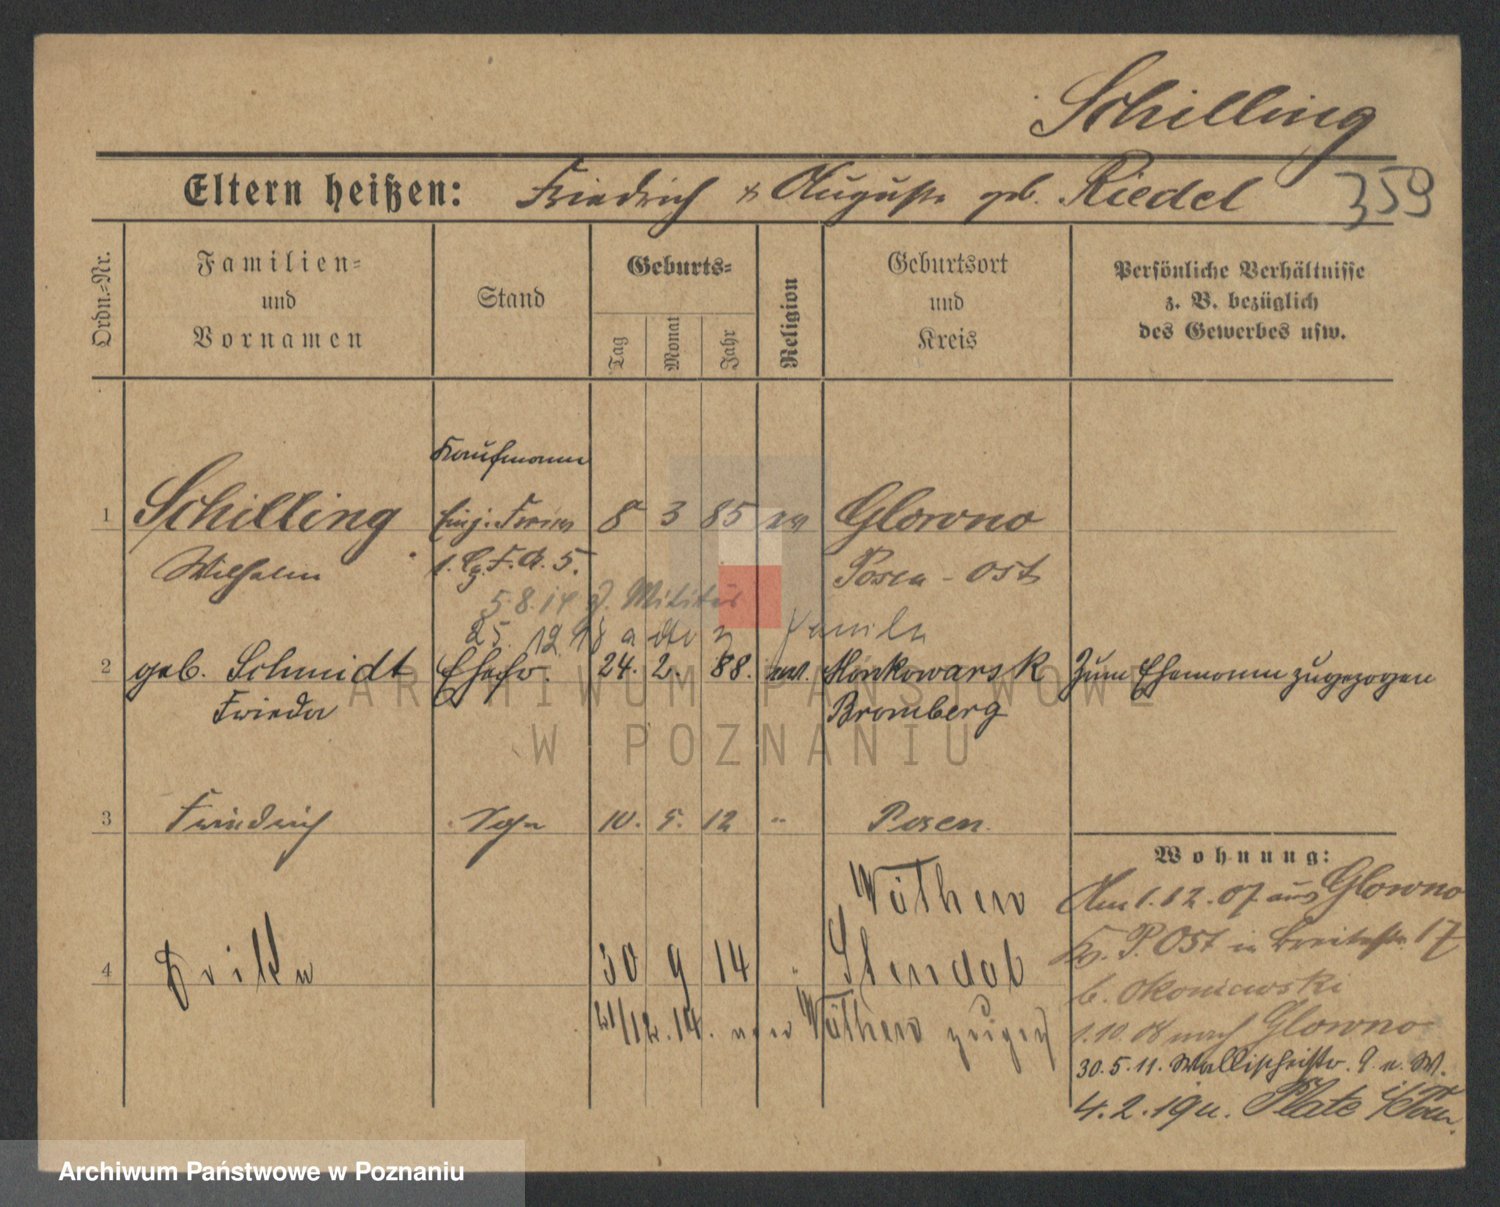 Schilling
Eltern heißen: Friedrich & Auguste geb. Riedel 359
Ordn.-Nr.
Familien-
und
Vornamen
Stand
Geburts-
Tag
Monat
Jahr
Religion
Geburtsort
und
Kreis
Persönliche Verhältnisse
z. B. bezüglich
des Gewerbes usw.
Kaufmann
1 Schilling Einj. Freiw 8 3 85 ev Glowno
Wilhelm F. A. 5. Posen - Ost
5.8.14 z. Militär
25. 12. 18
2 geb. Schmidt Ehefr. 24. 2. 88. ev. Monkowarsk Zum Ehemann zugezogen
Frieda Bromberg
3 Friedrich Sohn 10. 5. 12 " Posen
Wohnung:
Wöthen
Am 1.12.07 aus Glowno
Kr. P. Ost in Breitestr. 17
4 30 9 14 Stendal
b. Okoniewski
21/12.14. von Wöthen
1.10.08 nach Glowno
30.5.11. Wallischeistr. 9 n. W.
4.2.19 n. Plate i/Pom.
ARCHIWUM PAŃSTWOWE
W POZNANIU
Archiwum Państwowe w Poznaniu